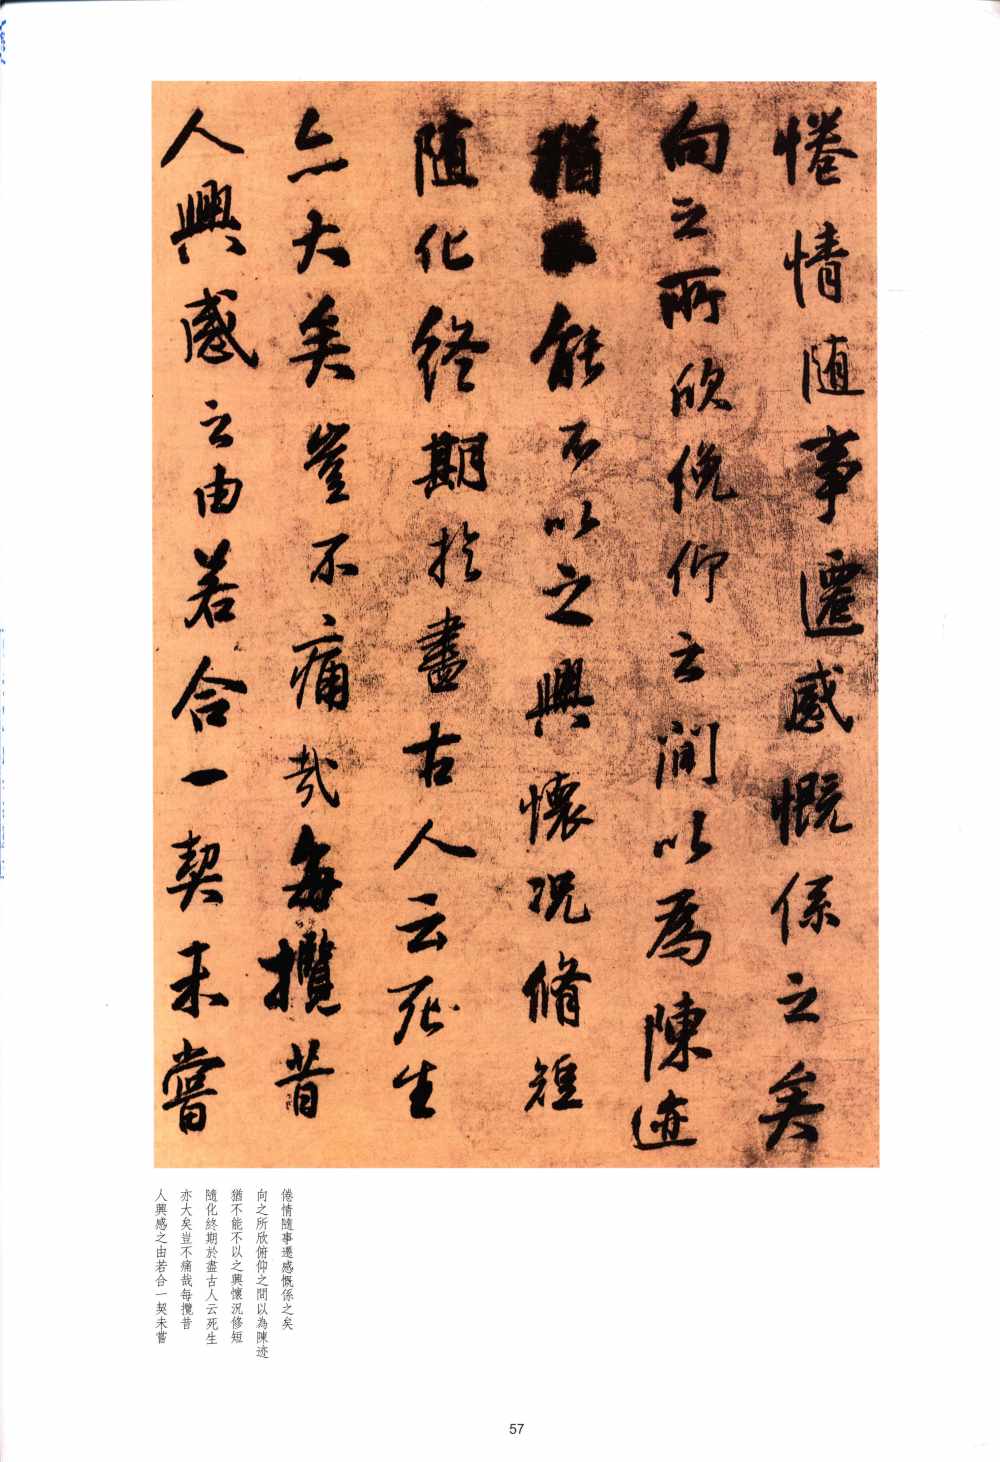 惓情随事遷感慨係之矣
向之所欣俛仰之間以為陳迹
猶不能不以之興懷況脩短
随化終期於盡古人云死生
亦大矣豈不痛哉每攬昔
人興感之由若合一契未嘗
倦情隨事遷感慨係之矣
向之所欣俯仰之間以為陳迹
猶不能不以之興懷況修短
隨化終期於盡古人云死生
亦大矣豈不痛哉每攬昔
人興感之由若合一契未嘗
57